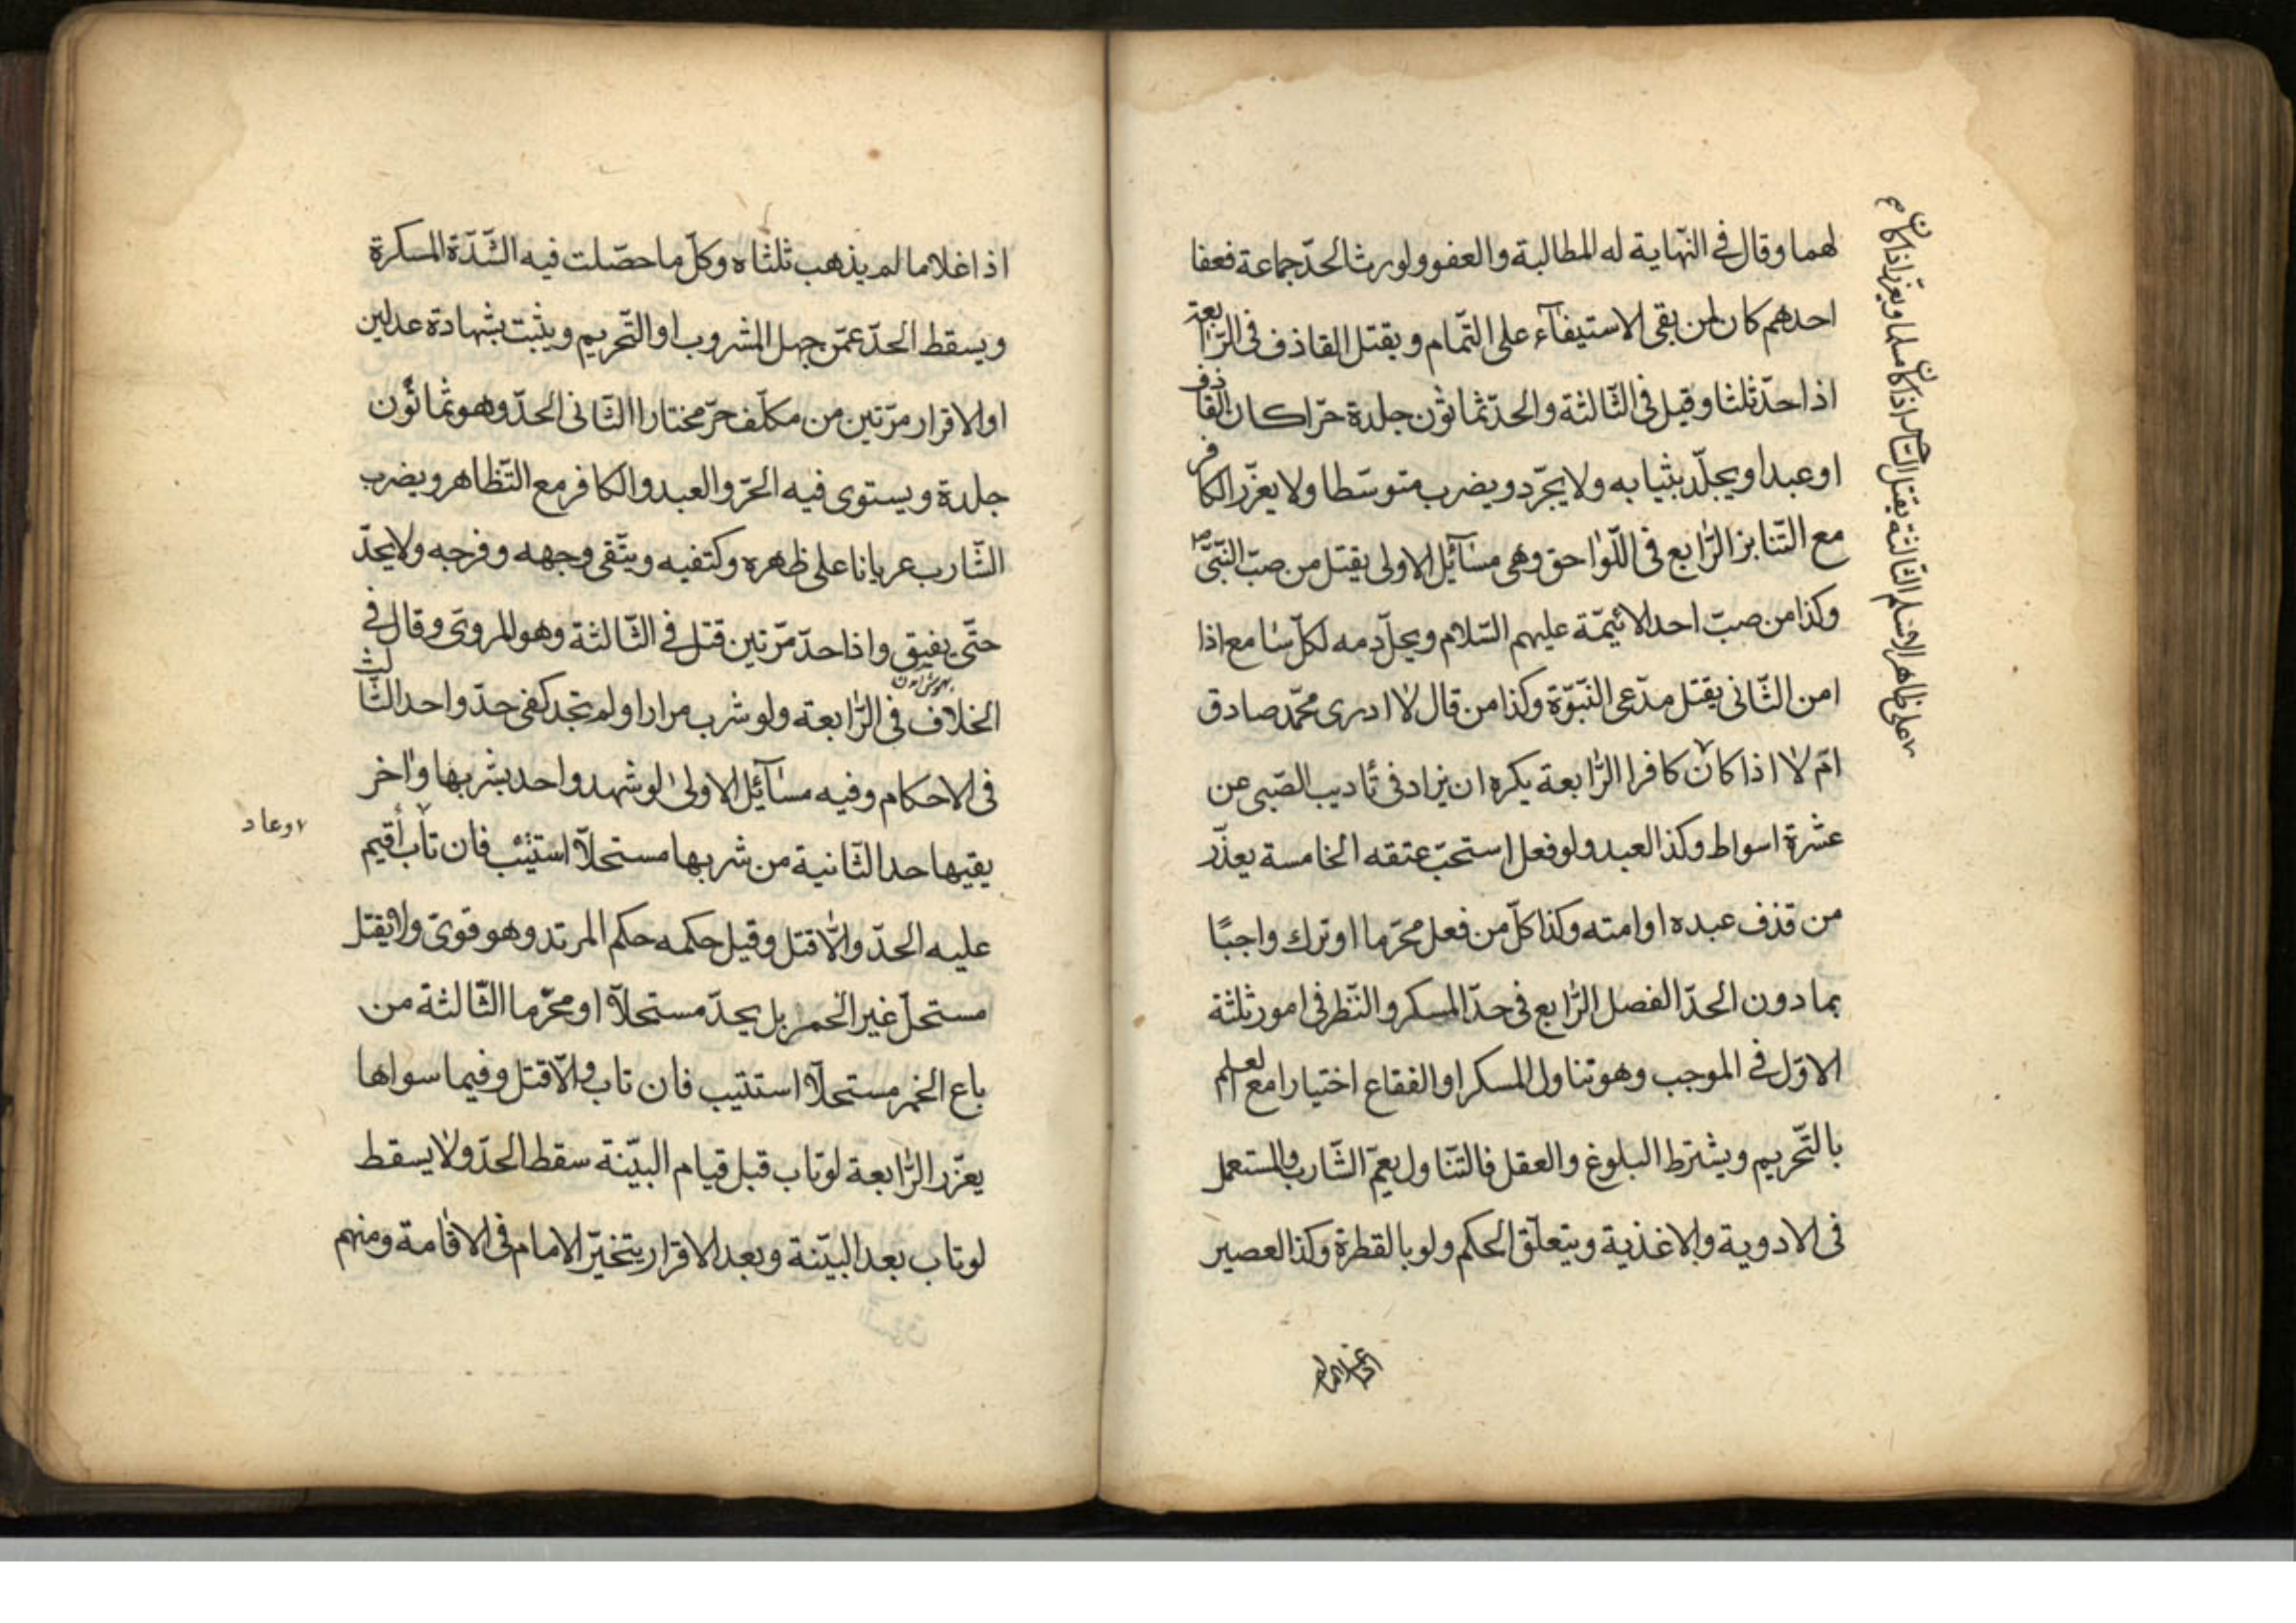 لهما وقال فى النّهاية له المطالبة والعفو ولو ورث الحدّ جماعة فعفا
احدهم كان لمن بقى الاستيفآء على التّمام ويقتل القاذف فى الرّابعة
اذا حدّ ثلثا وقيل فى الثّالثة والحدّ ثمانون جلدة حرّا كان القاذف
او عبدا ويجلّد بثيابه ولا يجرّد ويضرب متوسّطا ولا يعزّر الكافر
مع التّنابز الرّابع فى اللّواحق وهى مسآئل الاولى يقتل من صبّ النّبىّ ص
وكذا من صبّ احد الائيمّة عليهم السّلام ويحلّ دمه لكلّ سامع اذا
امن الثّانى يقتل مدّعى النّبوّة وكذا من قال لا ادرى محمّد صادق
امّ لا اذا كان كافرا الرّابعة يكره ان يزاد فى تأديب الصّبى عن
عشرة اسواط وكذا العبد ولو فعل استحبّ عتقه الخامسة يعذّر
من قذف عبده او امته وكذا كلّ من فعل محرّما او ترك واجبًا
بما دون الحدّ الفصل الرّابع فى حدّ المسكر والنّظر فى امور ثلثة
الاوّل فى الموجب وهو تناول المسكر او الفقاع اختيارا مع العلم
بالتّحريم ويشترط البلوغ والعقل فالتّناول يعمّ الشّارب والمستعمل
فى الادوية والاغذية ويتعلّق الحكم ولو بالقطرة وكذا العصير
على ظاهر الاسلم الثّالثة يقتل السّاحر اذا كان مسلما ويعزّر اذا كان
اذا غلا ما لم يذهب ثلثاه وكلّ ما حصّلت فيه الشّدّة المسكرة
ويسقط الحدّ عمّن جهل المشروب او التّحريم ويثبت بشهادة عدلين
او الاقرار مرّتين من مكلّف حرّ مختارا الثّانى الحدّ وهو ثمانون
جلدة ويستوى فيه الحرّ والعبد والكافر مع التّظاهر ويضرب
الشّارب عريانا على ظهره وكتفيه ويتّقى وجهه وفرجه ولا يحدّ
حتّى يفيق واذا حدّ مرّتين قتل فى الثّالثة وهو المروىّ وقال فى
الخلاف فى الرّابعة ولو شرب مرارا ولم يحد كفى حدّ واحد الثّالث
فى الاحكام وفيه مسآئل الاولى لو شهد واحد بشربها واخر
يقيها حد الثّانية من شربها مستحلّا استئيب فان تاب أقيم
وعاد
عليه الحدّ والّا قتل وقيل حكمه حكم المرتد وهو قوىّ ولا يقتل
مستحلّ غير الخمر بل يحدّ مستحلّا او محرّما الثّالثة من
باع الخمر مستحلّا استتيب فان تاب والّا قتل وفيما سواها
يعزّر الرّابعة لو تاب قبل قيام البيّنة سقط الحدّ ولا يسقط
لو تاب بعد البيّنة وبعد الاقرار يتخيّر الامام فى الاقامة ومنهم